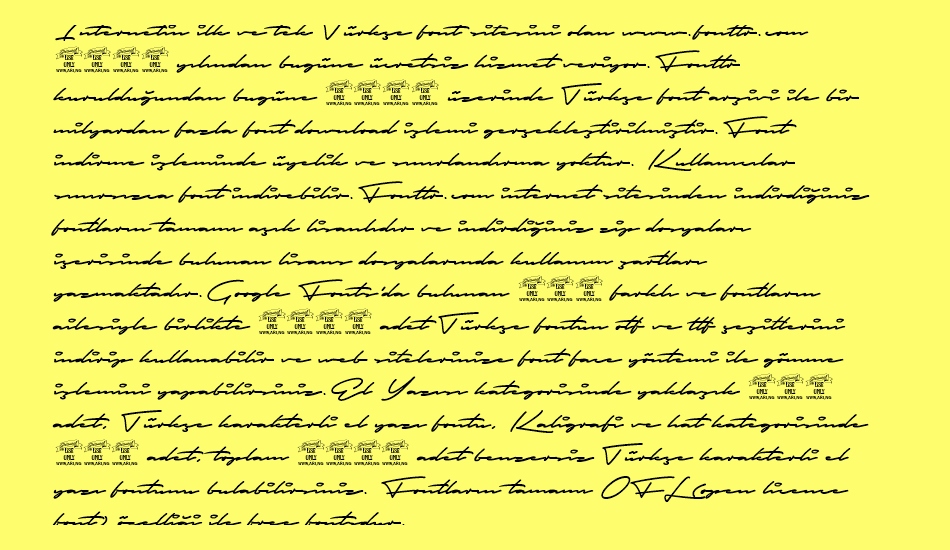 İnternetin ilk ve tek Türkçe font sitesini olan www.fonttr.com
yılından bugüne ücretsiz hizmet veriyor. Fonttr
kurulduğundan bugüne üzerinde Türkçe font arşivi ile bir
milyardan fazla font download işlemi gerçekleştirilmiştir. Font
indirme işleminde üyelik ve sınırlandırma yoktur. Kullanıcılar
sınırsızca font indirebilir. Fonttr.com internet sitesinden indirdiğiniz
fontların tamamı açık lisanlıdır ve indirdiğiniz zip dosyaları
içerisinde bulunan lisans dosyalarında kullanım şartları
yazmaktadır. Google Fonts'da bulunan farklı ve fontların
ailesiyle birlikte adet Türkçe fontun otf ve ttf çeşitlerini
indirip kullanabilir ve web sitelerinize font face yöntemi ile gömme
işlemini yapabilirsiniz. El Yazısı kategorisinde yaklaşık
adet, Türkçe karakterli el yazı fontu, Kaligrafi ve hat kategorisinde
adet, toplam adet benzersiz Türkçe karakterli el
yazı fontunu bulabilirsiniz. Fontların tamamı OFL(open license
font) özelliği ile free fontudur.